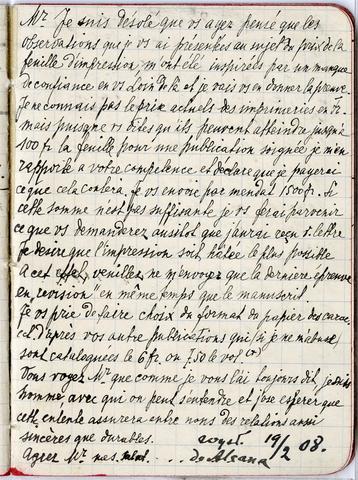 Mr Je suis désolé que vs ayez pensé que les
observations que je vs ai présentées au sujet du prix de la
feuille d'impression m'ont été inspirées par un manque
de confiance en vs. Loin de là et je vais vs en donner la preuve.
Je ne connais pas le prix actuels des imprimeries en Fr.
mais puisque vs dites qu'ils peuvent atteindre jusqu'à
100 fr la feuille pour une publication soignée je m'en
rapporte a votre competence et déclare que je payerai
ce que cela coutera. Je vs envoie par mandat 1500 fr. Si
cette somme n'est pas suffisante je vs ferai parvenir
ce que vs demanderez aussitot que j'aurai reçu vs lettre
Je desire que l'impression soit hâtée le plus possible
A cet effet, veuillez ne m'envoyer que la dernière épreuve
"en revision" en même temps que le manuscrit
Je vs prie de faire choix du format du papier des carac.
d'après vos autre publications qui, si je ne m'abuse,
sont cataloguées le 6 fr. ou 7,50 le vol
Vous voyez Mr que comme je vous l'ai toujours dit, je suis
homme avec qui on peut s'entendre et j'ose espérer que
cette entente assurera entre nous des relations aussi
sincères que durables.
19/2 08.
Agréer Mr mes salut. . . .